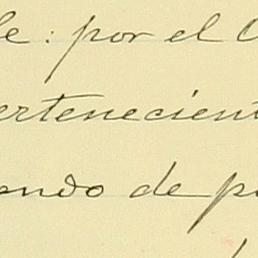 le: por el
ertenecient
endo de p